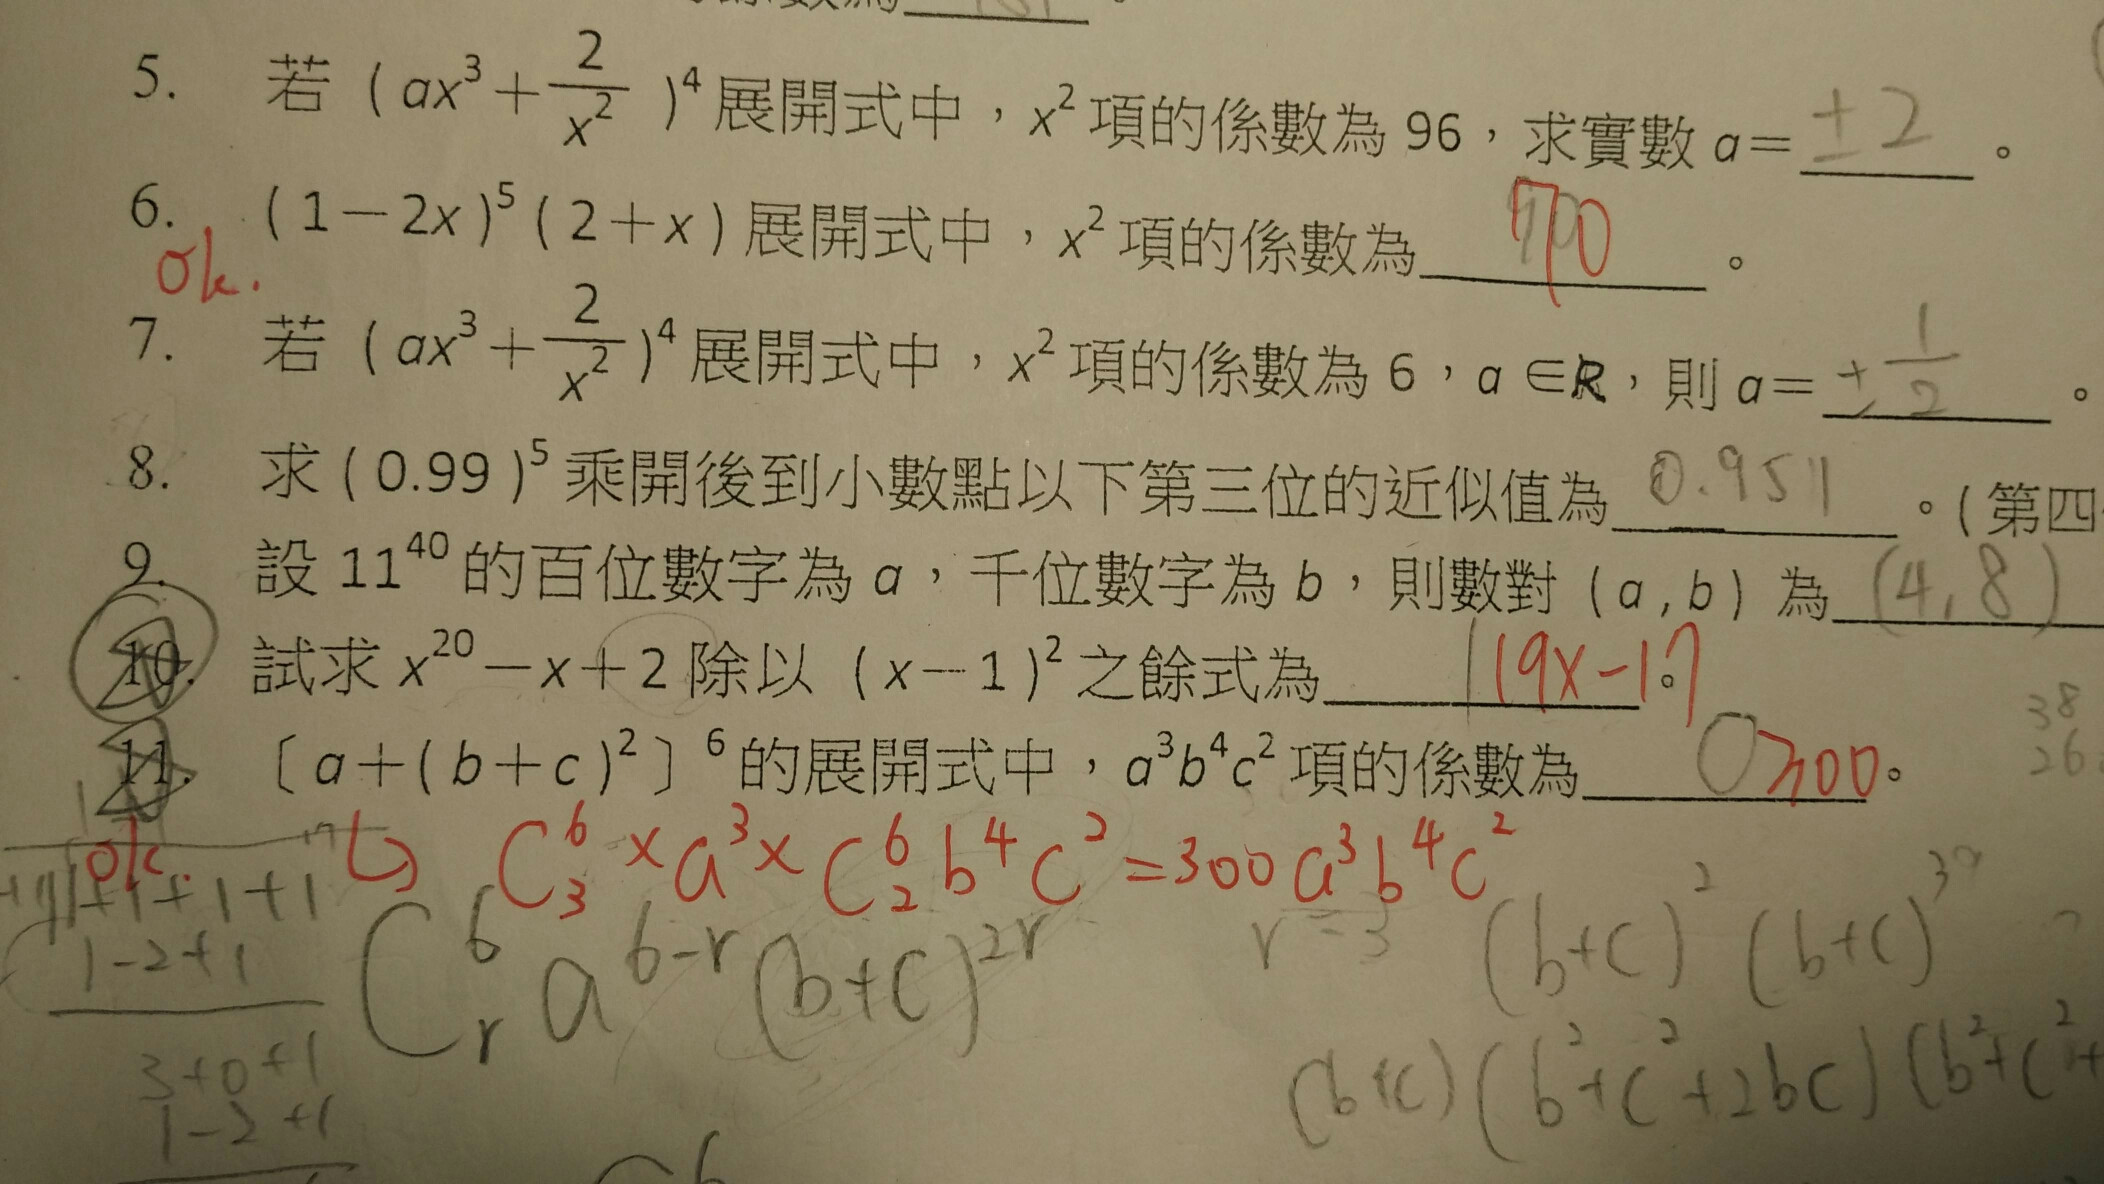 5. 若 ( ax³ + 2/x² )⁴ 展開式中，x² 項的係數為 96，求實數 a= ±2 。
6. ( 1－2x )⁵ ( 2＋x ) 展開式中，x² 項的係數為 70 。
ok.
7. 若 ( ax³ + 2/x² )⁴ 展開式中，x² 項的係數為 6，a ∈R，則 a= ± 1/2 。
8. 求 ( 0.99 )⁵ 乘開後到小數點以下第三位的近似值為 0.9511 。( 第四
9. 設 11⁴⁰ 的百位數字為 a，千位數字為 b，則數對 ( a , b ) 為 (4,8)
10. 試求 x²⁰－x＋2 除以 ( x－1 )² 之餘式為 19x-17 。
11. 〔 a＋( b＋c )² 〕⁶ 的展開式中，a³b⁴c² 項的係數為 300 。
38
26
ok. C⁶₃ × a³ × C⁶₂ b⁴ c² = 300 a³ b⁴ c²
1+1+1+1
C⁶ᵣ a⁶⁻ʳ (b+c)²ʳ r=3 (b+c)² (b+c)
1-2+1
3+0+1
(b+c) (b²+c²+2bc) (b²+c²+
1-2+1
6